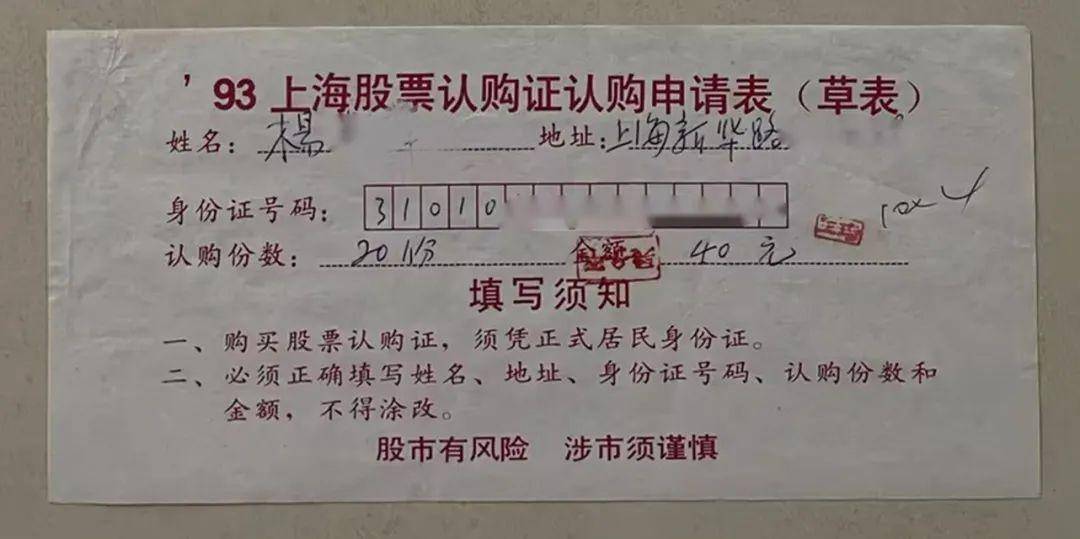 '93上海股票认购证认购申请表（草表）
姓名：杨 地址：上海新华路
身份证号码：31010
10×4
认购份数：20份 金额 40元
填写须知
一、购买股票认购证，须凭正式居民身份证。
二、必须正确填写姓名、地址、身份证号码、认购份数和
金额，不得涂改。
股市有风险 涉市须谨慎